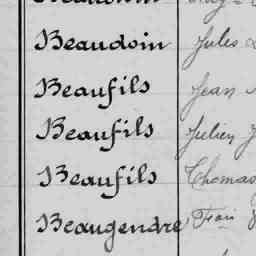 Beaudoin Jules
Beaufils Jean
Beaufils Julien J
Beaufils Thomas
Beaugendre